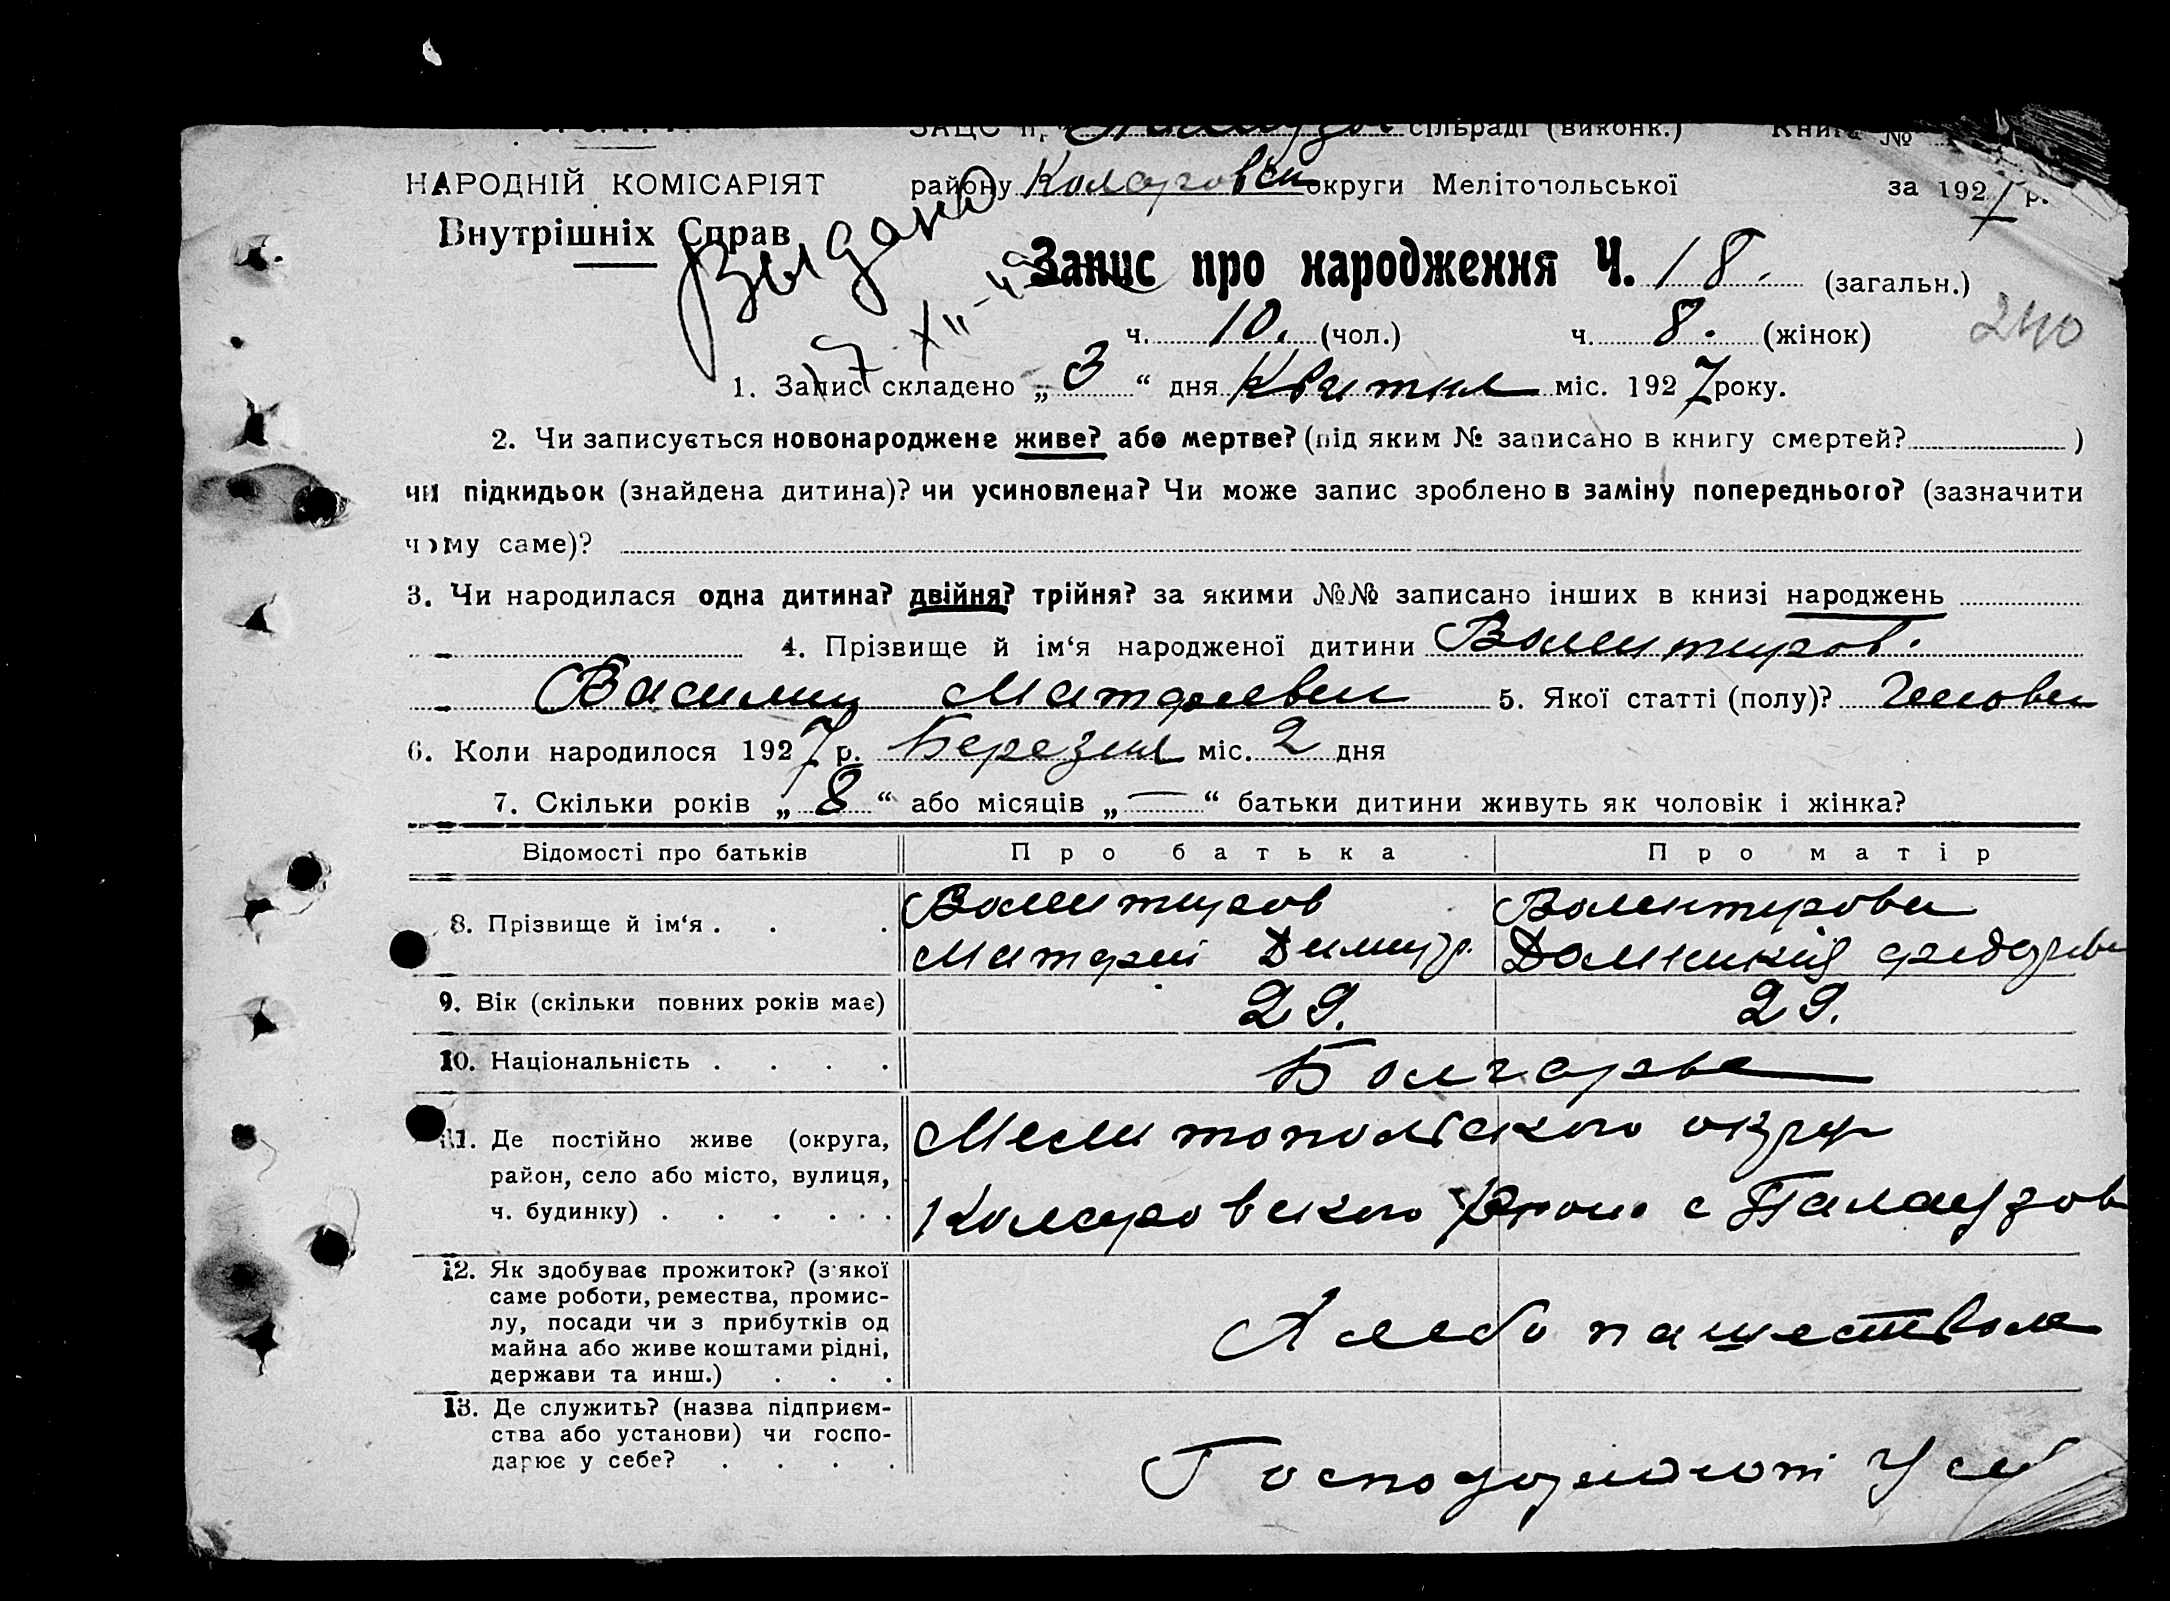 ЗАЦС п, сільраді (виконк.) Книга №
НАРОДНІЙ КОМІСАРІЯТ району Коларовськ округи Мелітопольської за 1927 р.
Внутрішніх Справ
Выдано
Запис про народження Ч. 18. (загальн.)
240
ч. 10. (чол.) ч. 8. (жінок)
1. Запис складено „ 3 “ дня Квитня міс. 1927 року.
2. Чи записується новонароджене живе? або мертве? (під яким № записано в книгу смертей? )
чи підкидьок (знайдена дитина)? чи усиновлена? Чи може запис зроблено в заміну попереднього? (зазначити
чому саме)?
3. Чи народилася одна дитина? двійня? трійня? за якими №№ записано інших в книзі народжень
4. Прізвище й ім‘я народженої дитини Волитиров.
Василий Матфеевич 5. Якої статті (полу)? Чолов
6. Коли народилося 1927 р. Березня міс. 2 дня
7. Скільки років „ 8 “ або місяців „ — “ батьки дитини живуть як чоловік і жінка?
Відомості про батьків Про батька Про матір
8. Прізвище й ім‘я . . . Волитиров Волинтирова
Матфей Димитр. Домникия Федоров
9. Вік (скільки повних років має) 29. 29.
10. Національність . . . . Болгаре
11. Де постійно живе (округа, Мелитопольского окру
район, село або місто, вулиця,
ч. будинку) . . . . . . Коларовского район с Палаузов
12. Як здобуває прожиток? (з'якої
саме роботи, ремества, промис-
лу, посади чи з прибутків од Хлебопашеством
майна або живе коштами рідні,
держави та инш.) . . .
13. Де служить? (назва підприєм-
ства або установи) чи госпо-
дарює у себе? . . . . Господарюют у себ